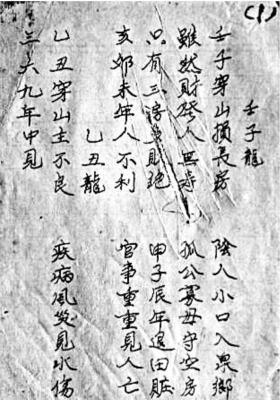 (1)
壬子龍
壬子穿山損長房 陰人小口入泉鄉
雖然財發人無壽 孤公寡母守空房
只有三房財 子辰年退田
亥卯未年人不利 官事重重見人亡
乙丑龍
乙丑穿山主不良 疾病風發見水傷
三六九年中見